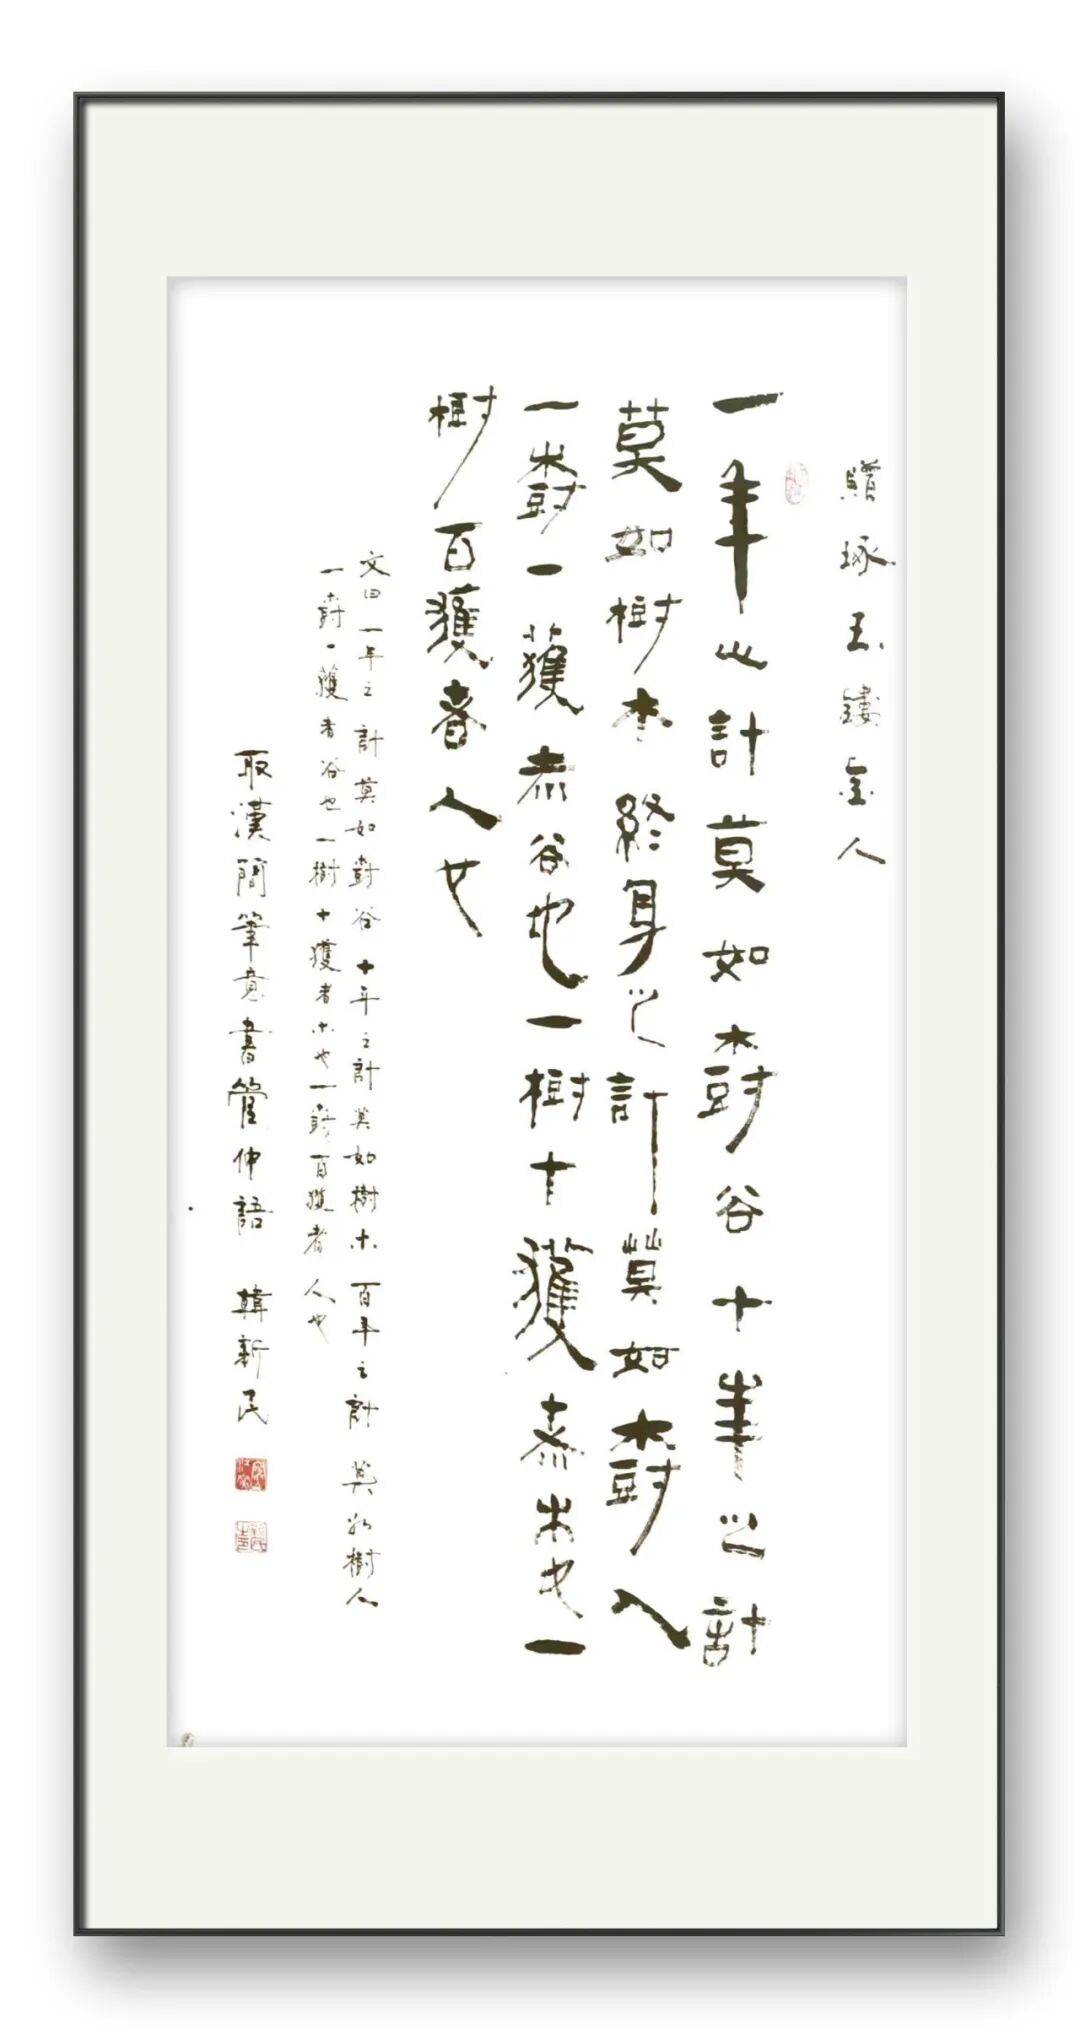 贈琢玉鏤金人
一年之計莫如樹谷十年之計
莫如樹木終身之計莫如樹人
一樹一獲者谷也一樹十獲者木也一
樹百獲者人也
文曰一年之計莫如樹谷十年之計莫如樹木百年之計莫如樹人
一樹一獲者谷也一樹十獲者木也一樹百獲者人也
取漢簡筆意書管仲語 韓新民